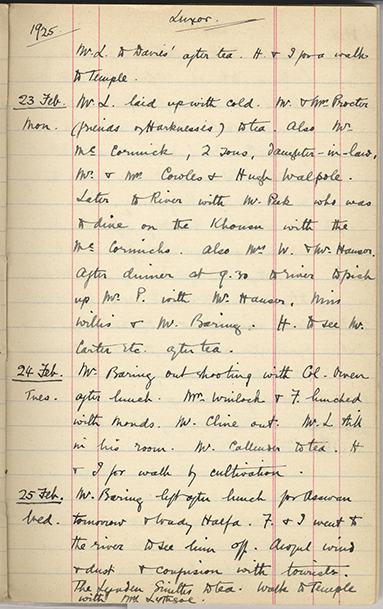 1925.
Luxor.
Mr. L. to Davies' after tea. H. & I for a walk
to temple.
23 Feb. Mr. L. laid up with cold. Mr. & Mrs Proctor
Mon. (friends of Harknesses) to tea. Also Mr.
McCormick, 2 sons, daughter-in-law,
Mr. & Mrs. Cowles & Hugh Walpole.
Later to River with Mr. Peek who was
to dine on the Khonsu with the
McCormicks. Also Mrs W. & Mr. Hauser.
After dinner at 9.30 to river to pick
up Mr. P. with Mr. Hauser, Miss
Willis & Mr. Baring. H. to see Mr.
Carter etc. after tea.
24 Feb. Mr. Baring out shooting with Col. Owen
Tues. after lunch. Mrs. Winlock & F. lunched
with Monds. Mr. Cline out. Mr. L. still
in his room. Mr. Callender to tea. H
& I for walk by cultivation.
25 Feb. Mr. Baring left after lunch for Assuan
Wed. tomorrow & Wady Halfa. F. & I went to
the river to see him off. Awful wind
& dust & confusion with tourists.
The Lynden Smiths to tea. Walk to temple
with Mrs Lythgoe.